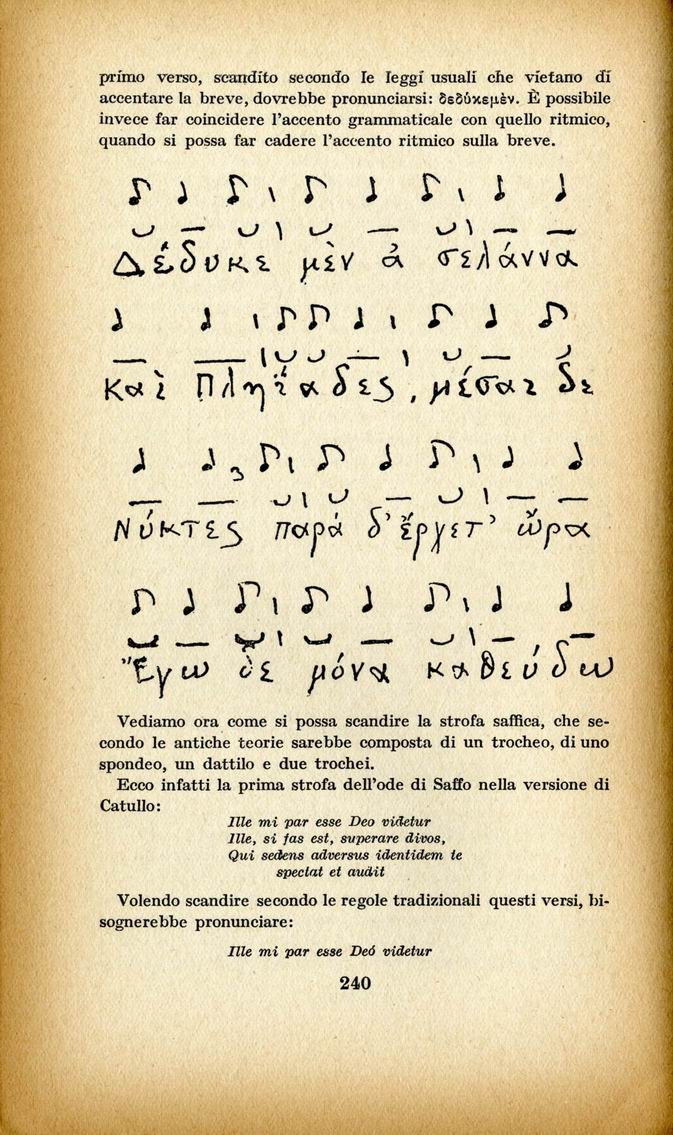 primo verso, scandito secondo le leggi usuali che vietano di
accentare la breve, dovrebbe pronunciarsi: δεδύκεμὲν. È possibile
invece far coincidere l'accento grammaticale con quello ritmico,
quando si possa far cadere l'accento ritmico sulla breve.
Δέδυκε μὲν ἀ σελάννα
καὶ Πληΐαδες, μέσαι δε
Νύκτες παρά δ' ἔρχετ' ὦρα
Ἔγω δε μόνα καθεύδω
Vediamo ora come si possa scandire la strofa saffica, che se-
condo le antiche teorie sarebbe composta di un trocheo, di uno
spondeo, un dattilo e due trochei.
Ecco infatti la prima strofa dell'ode di Saffo nella versione di
Catullo:
Ille mi par esse Deo videtur
Ille, si fas est, superare divos,
Qui sedens adversus identidem te
spectat et audit
Volendo scandire secondo le regole tradizionali questi versi, bi-
sognerebbe pronunciare:
Ille mi par esse Deó videtur
240